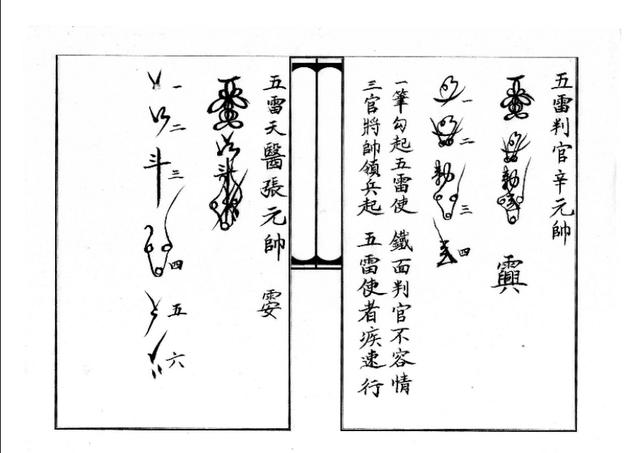 五雷判官辛元帥
一
二
三
四
一筆勾起五雷使 鐵面判官不容情
三官將帥領兵起 五雷使者疾速行
五雷天醫張元帥
一
二
三
四
五
六